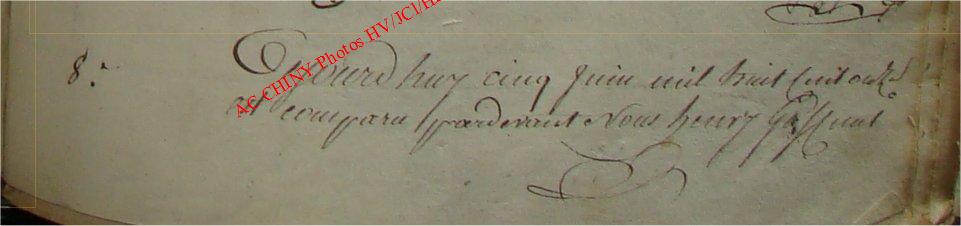 8.
Ajourd huy cinq Juin mil huit cent onze
est comparu pardevant Nous henry
AC CHINY Photos HV/JCI/H